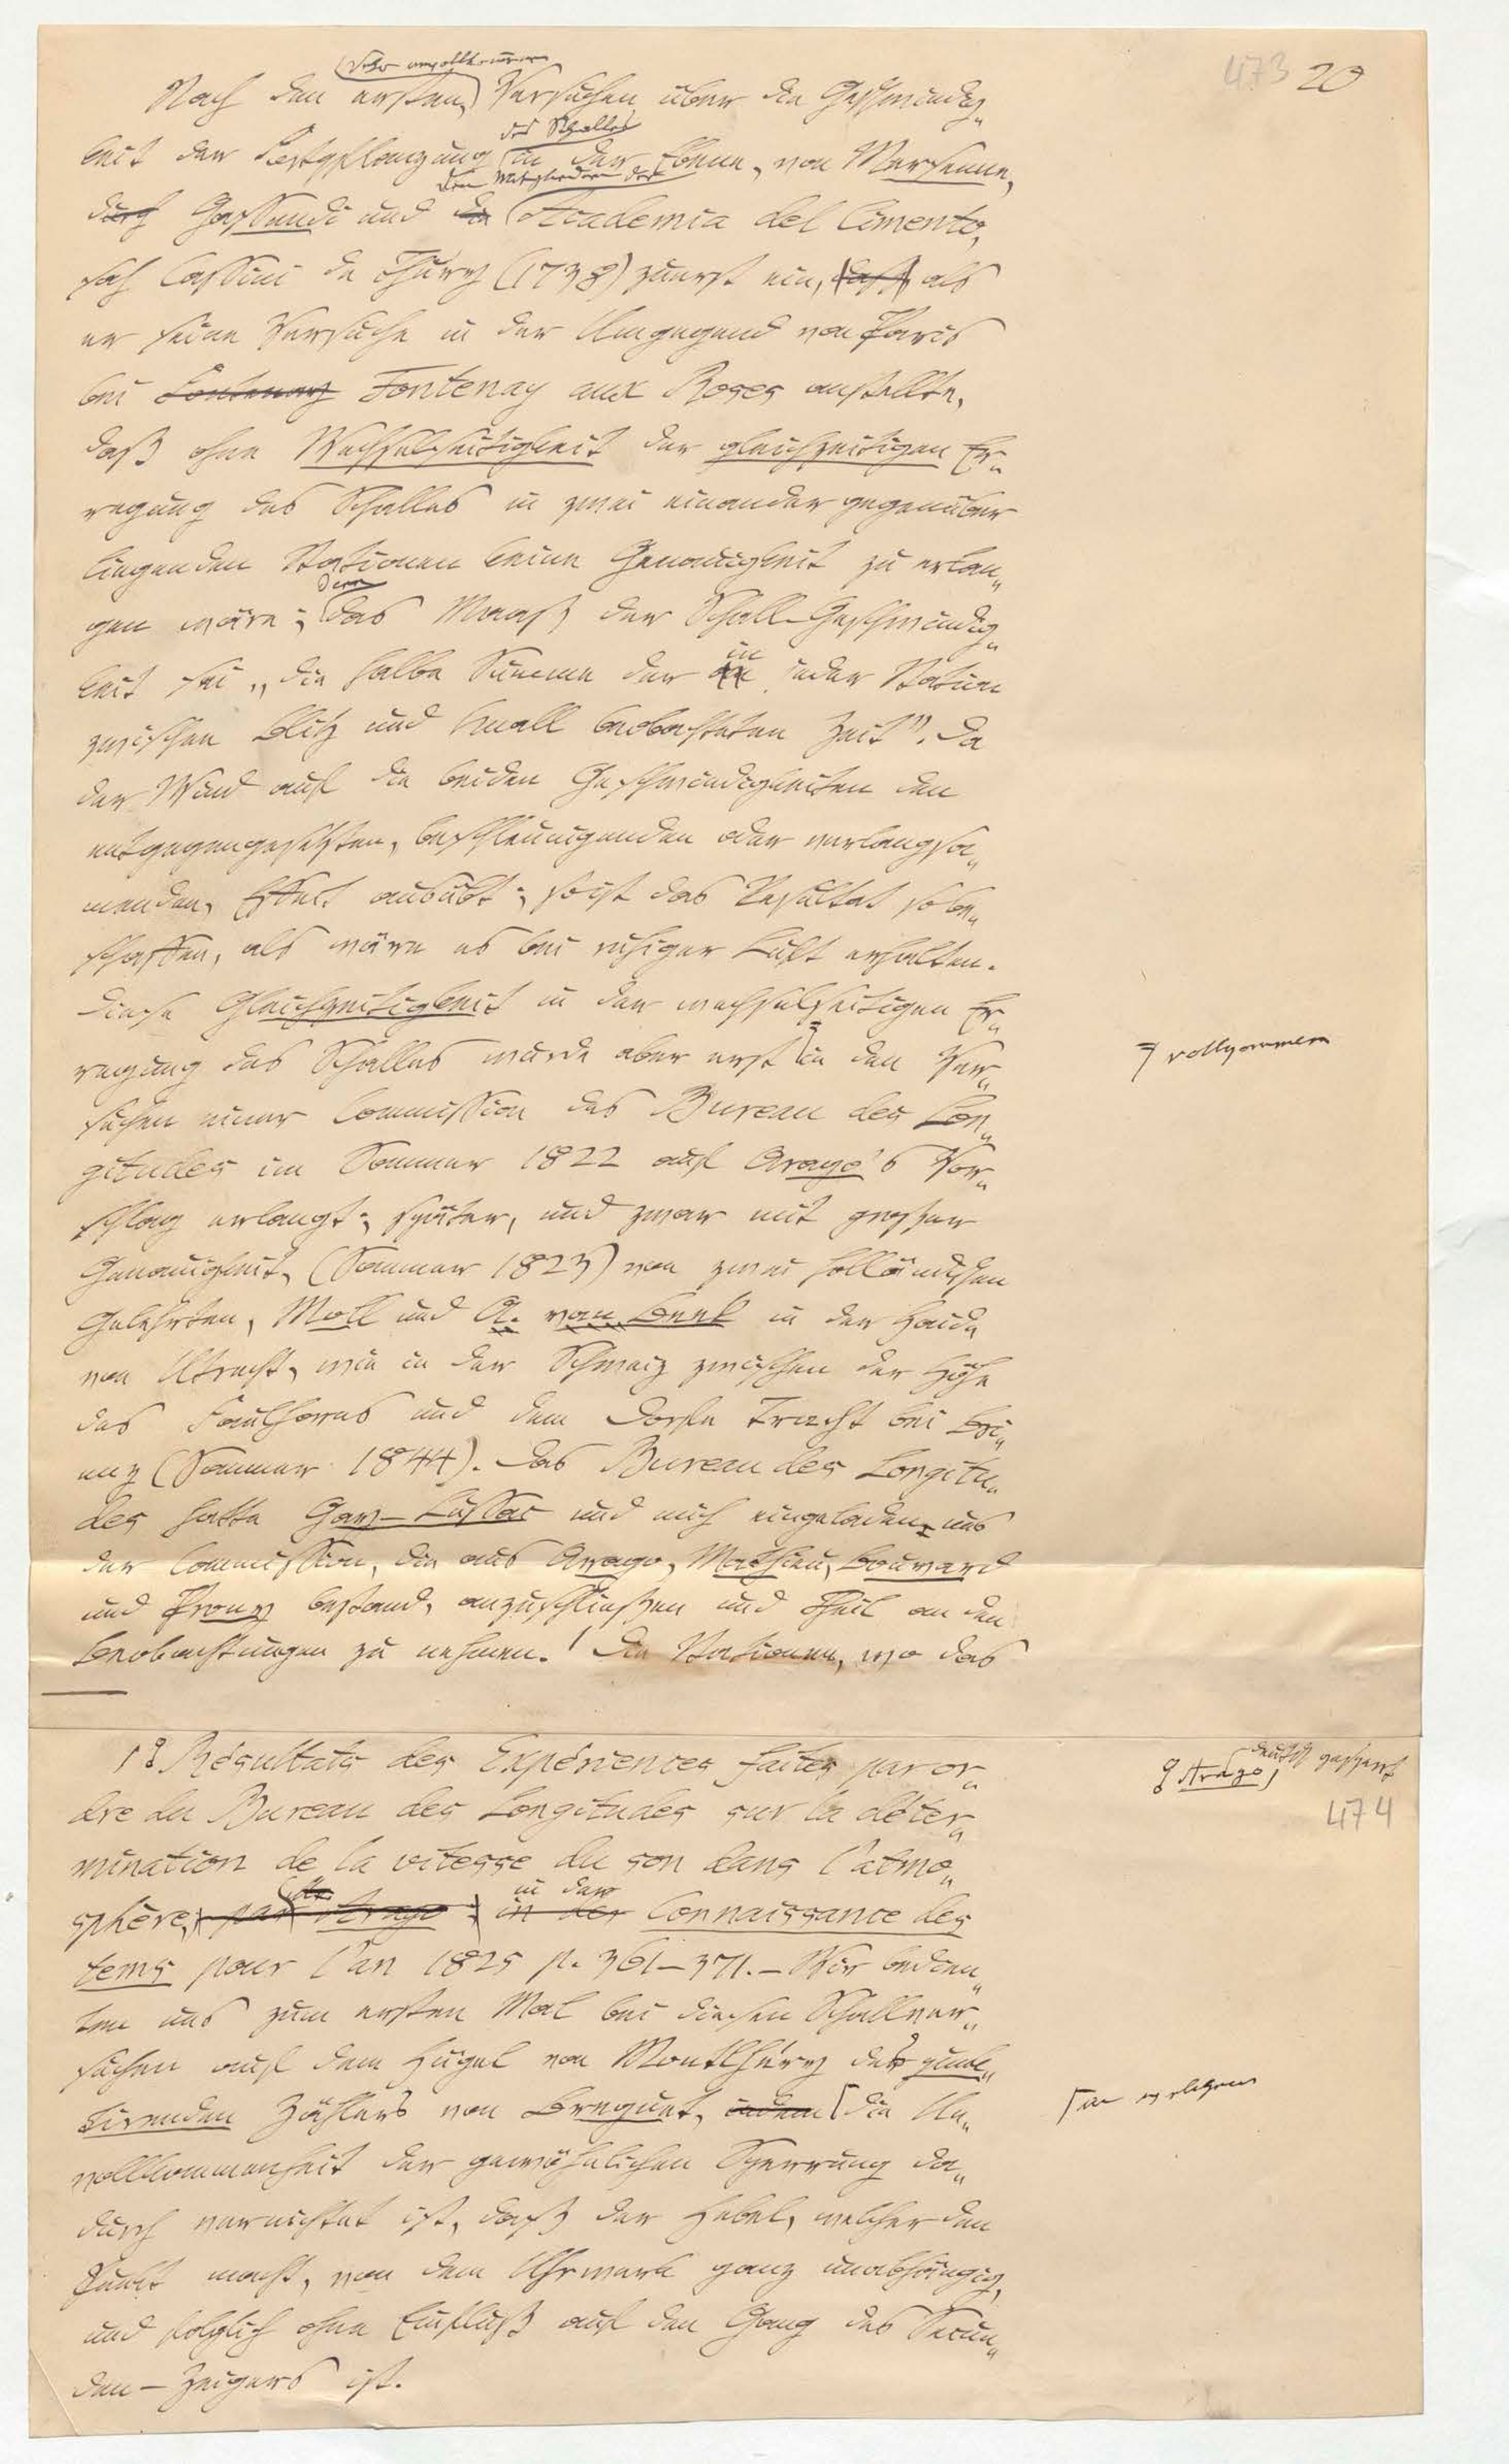 473 20
sehr unvollkommnen
Nach den ersten Versuchen über die Geschwindig„
des Schalles
keit der Fortpflanzung in der Ebene, von Mersenne,
den Mitgliedern der
durch Gassendi und die Academia del Cimento,
sah Cassini de Thury (1738) zuerst ein, daß, als
er seine Versuche in der Umgegend von Paris
bei Fontenay Fontenay aux Roses anstellte,
daß ohne Wechselseitigkeit der gleichzeitigen Er„
regung des Schalles in zwei einander gegenüber
liegenden Stationen keine Genauigkeit zu erlan„
denn
gen wäre; das Maaß der Schall-Geschwindig„
in
keit sei „die halbe Summe der an jeder Station
zwischen Blitz und Knall beobachteten Zeit". Da
der Wind auf die beiden Geschwindigkeiten den
entgegengesetzten, beschleunigenden oder verlangsa„
menden, Effect ausübt; so ist das Resultat so be„
schaffen, als wäre es bei ruhiger Luft erhalten.
Diese Gleichzeitigkeit in der wechselseitigen Er„
regung des Schalles wurde aber erst in den Ver„
vollkommen
suchen einer Commission des Bureau des Lon„
gitudes im Sommer 1822 auf Arago's Vor„
schlag erlangt; später, und zwar mit großer
Genauigkeit, (Sommer 1823) von zwei holländischen
Gelehrten, Moll und A. van Beek in der Haide
von Utrecht, wie in der Schweiz zwischen der Höhe
des Faulhorns und dem Dorfe Tracht bei Bri„
enz (Sommer 1844). Das Bureau des Longitu„
des hatte Gay-Lussac und mich eingeladen, uns
der Commission, die aus Arago, Mathieu, Bouvard
und Prony bestand, anzuschließen und Theil an den
Beobachtungen zu nehmen.¹ Die Stationen, wo das
1 Résultats des Expériences faites par or„
Arago, deutsch gesperrt
474
dre du Bureau des Longitudes sur la déter„
mination de la vitesse du son dans l'atmo„
in der
sphère, par Arago; in der Connaissance des
tems pour l'an 1825 p. 361–371. – Wir bedien„
ten uns zum ersten Mal bei diesen Schallver„
suchen auf dem Hügel von Montlhéry des punk„
tirenden Zählers von Breguet, indem die Un„
an welchem
vollkommenheit der gewöhnlichen Sperrung da„
durch vernichtet ist, daß der Hebel, welcher den
Punkt macht, von dem Uhrwerk ganz unabhängig,
und folglich ohne Einfluß auf den Gang des Secun„
den-Zeigers ist.